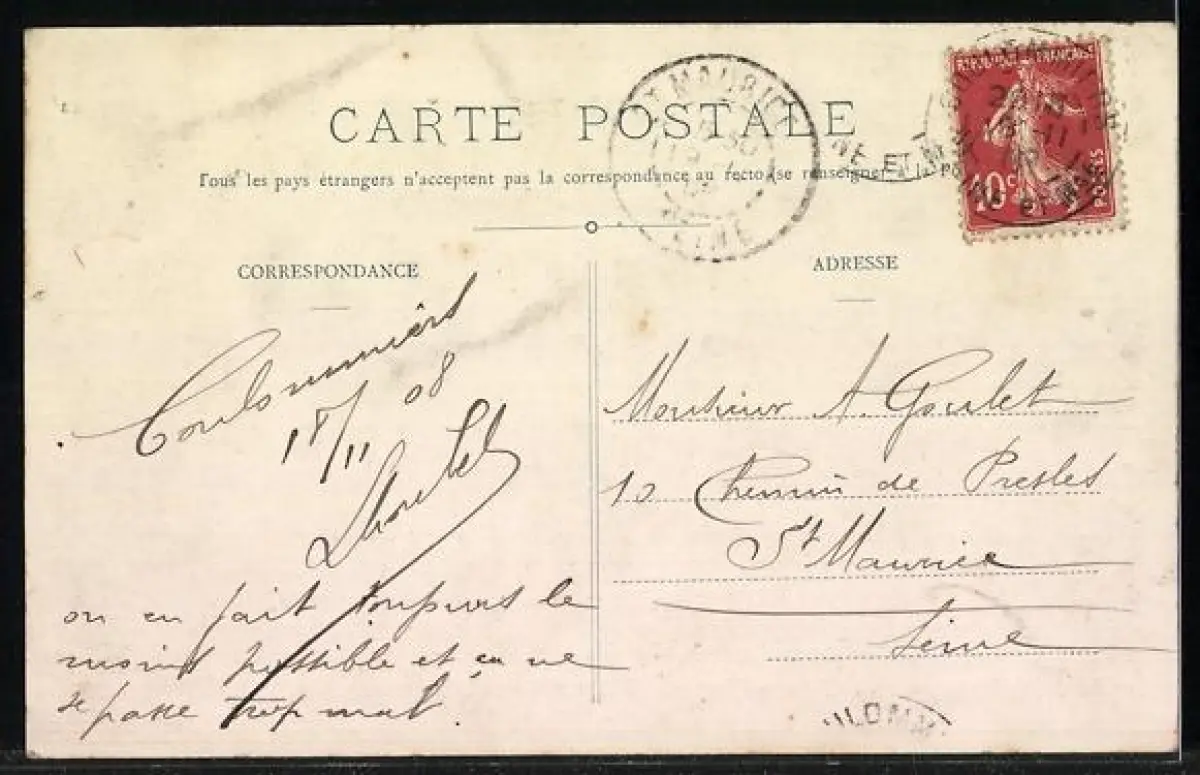 CARTE POSTALE
Tous les pays étrangers n'acceptent pas la correspondance au recto (se renseigner à la Po
CORRESPONDANCE
ADRESSE
Coulommiers
18/11 08
on en fait toujours le
moins possible et ça ne
se passe trop mal.
Monsieur A. Goulet
10 Chemin de Presles
St Maurice
Seine
RÉPUBLIQUE FRANÇAISE
10c
POSTES
ST MAURICE
SEINE
NE ET M
ULOMM